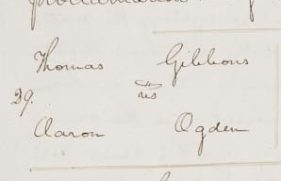 Thomas Gibbons
29. vs
Aaron Ogden